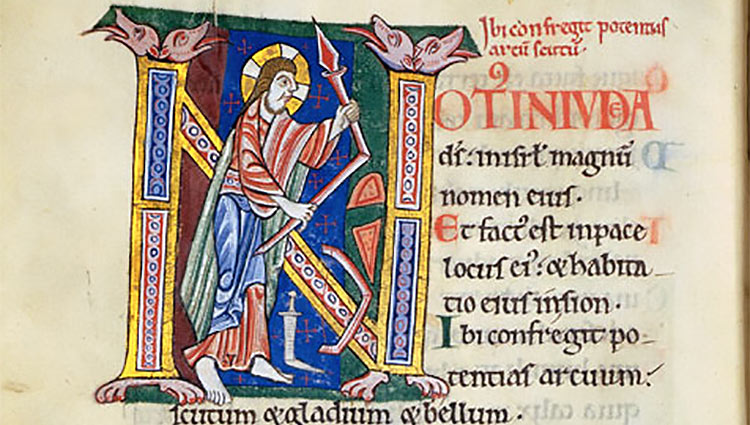 Ibi confregit potentias
arcū scutū.
NOTꝰ IN IVDEA
ds̄: in isrł magnū
nomen eius.
Et factꝰ est in pace
locus eiꝰ: & habita-
tio eius in sion.
Ibi confregit po-
tentias arcuum:
scutum & gladium & bellum.